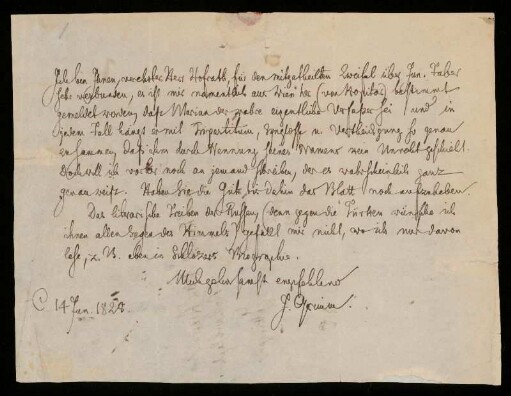 Ich bin Ihnen, verehrter Herr Hofrath, für den mitgetheilten Zweifel über Jun. Faber
sehr verbunden, es ist mir namentlich aus Wien her (von Kopitar) bestimmt
gemeldet worden, daß Marian der wahre eigentliche Verfaßer sei und in
jedem Fall hängt er mit u. Vertheidigung so genau
zusammen, daß ihm durch Nennung seines Namens kein Unrecht geschieht.
Doch will ich vorher noch an jemand schreiben, der es wahrscheinlich ganz
genau weiß. Haben Sie die Güte, bis dahin das Blatt noch aufzuheben.
Das literarische Treiben der Russen, (denn gegen die Türken wünsche ich
ihnen allen Segen des Himmels) gefällt mir nicht, wo ich nur davon
lese, z. B. eben in Schlözers Biographie.
Mich gehorsamst empfehlend
J. Grimm.
C 14 Jun. 1828